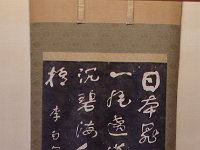 日本晁
一片遶
沉碧海
梧 李白